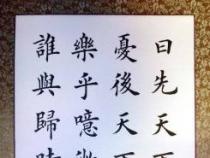 曰先天下
憂後天下
樂乎噫微
誰與歸時